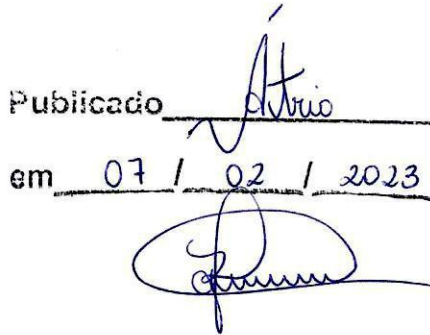 Publicado Átrio
em 07 / 02 / 2023